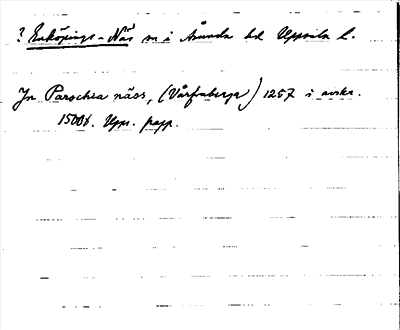 ? Enköpings-Näs sn i Åsunda hd Uppsala l.
In Parochia näss, (Vårfruberga) 1257 i avskr.
1500t. Upps. papp.